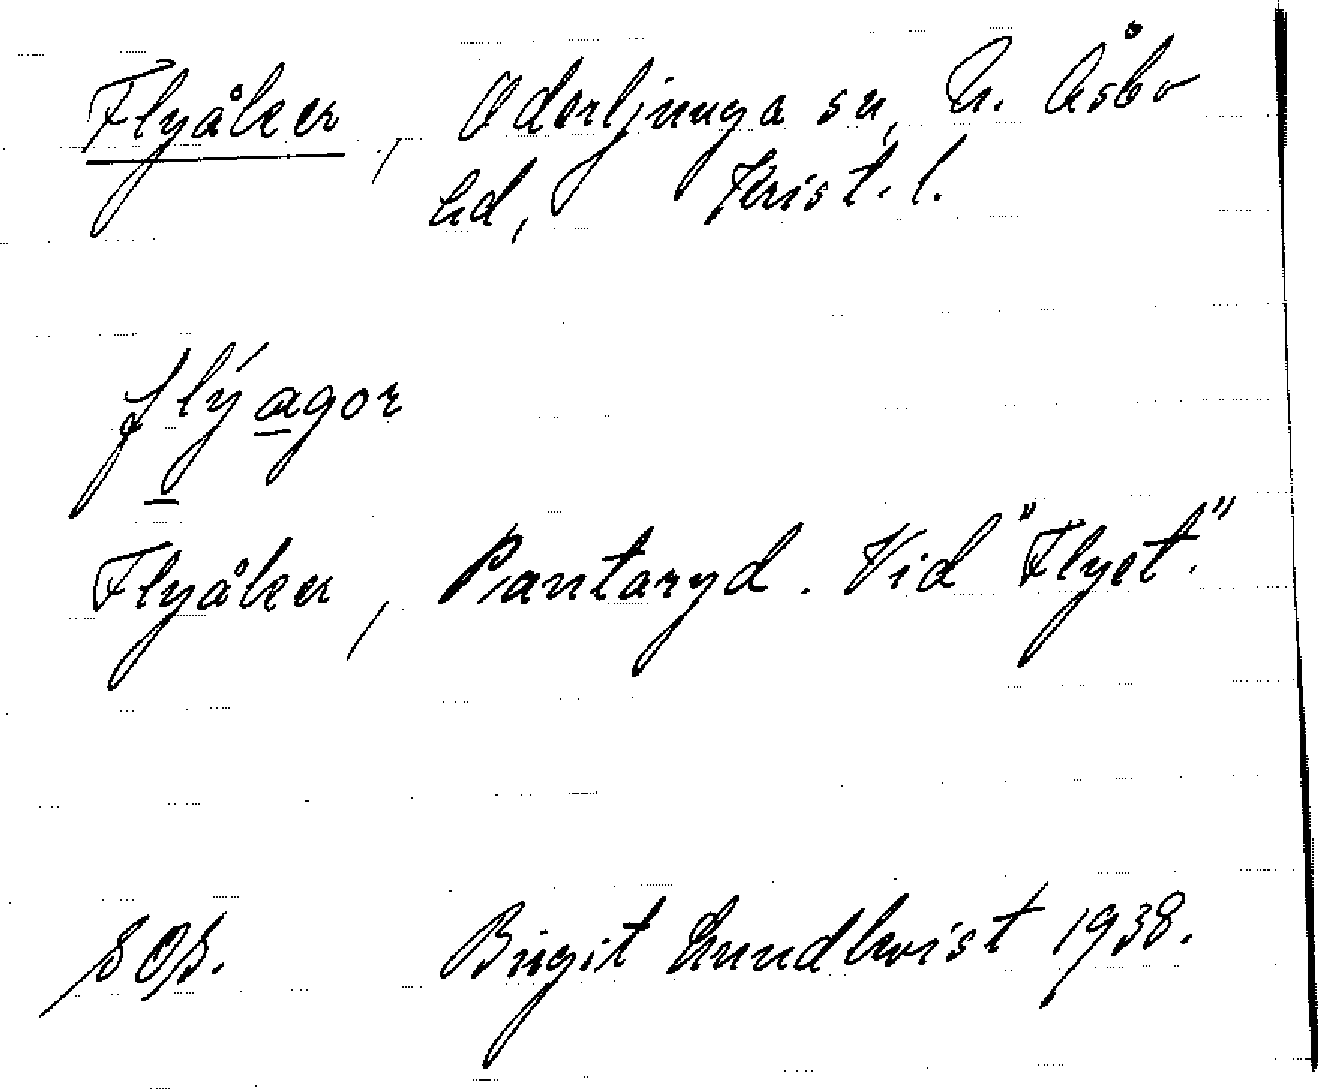 Flyåker, Oderljunga sn, N. Åsbo
hd, Krist. l.
flýagor
Flyåker, Pantaryd. Vid "Flyet".
Birgit Lundkvist 1938.